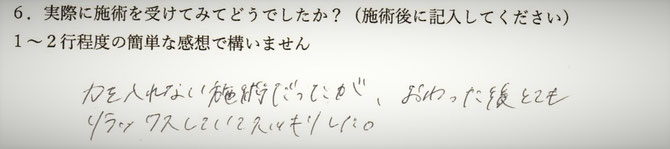 6．実際に施術を受けてみてどうでしたか？（施術後に記入してください）
1～2行程度の簡単な感想で構いません
力を入れない施術だったが、おわった後とても
リラックスしていてスッキリした。